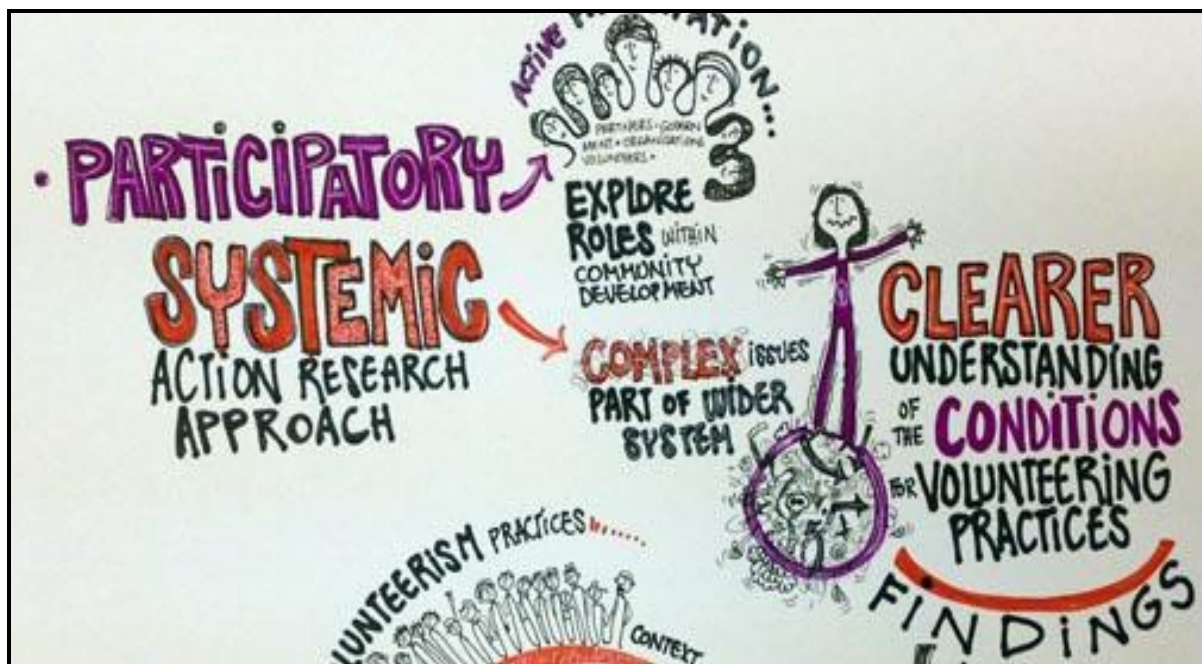 ACTIVE
• PARTICIPATORY
SYSTEMIC
ACTION RESEARCH
APPROACH
PARTNERS • GOVERN
MENT • ORGANISATIONS
VOLUNTEERS •
3
EXPLORE
ROLES WITHIN
COMMUNITY
DEVELOPMENT
COMPLEX ISSUES
PART OF WIDER
SYSTEM
CLEARER
UNDERSTANDING
OF THE CONDITIONS
FOR VOLUNTEERING
PRACTICES
FINDINGS
LUNTEERISM PRACTICES
CONTEXT